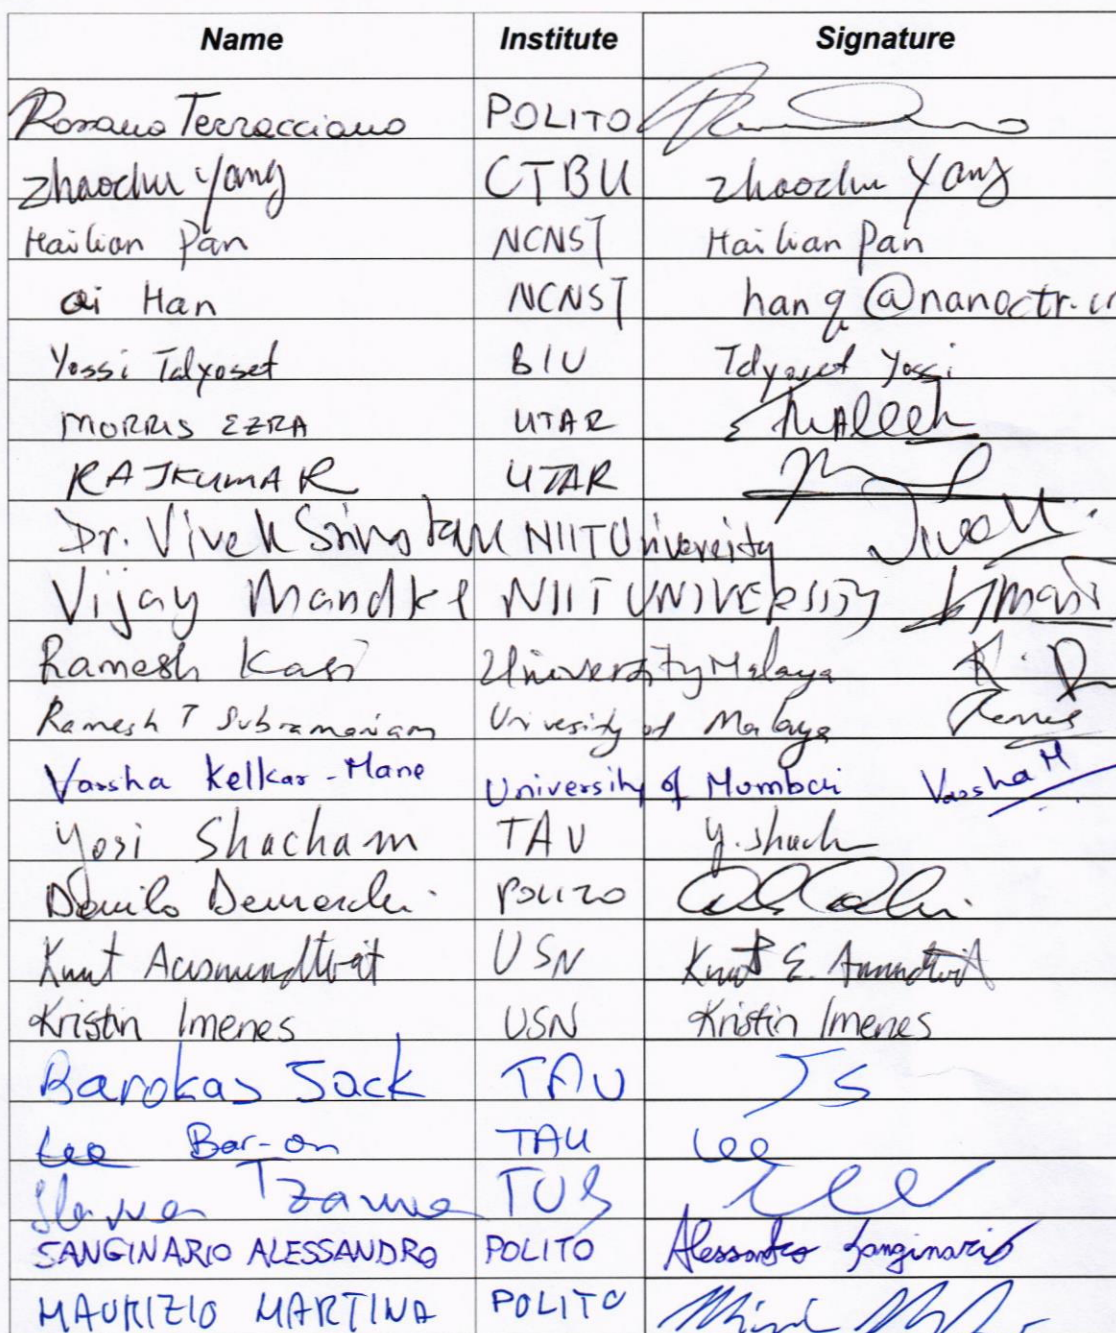 Name Institute Signature
Rossana Terracciano POLITO
Zhaochu Yang CTBU Zhaochu Yang
Hailian Pan NCNST Hailian Pan
Qi Han NCNST hanq@nanoctr.cn
Yossi Talyosef BIU Talyosef Yossi
MORRIS EZRA UTAR
RAJKUMAR UTAR
Dr. Vivek NIIT University
Vijay Mandke NIIT UNIVERSITY
Ramesh Kasi University Malaya
Ramesh T Subramaniam University of Malaya
Varsha Kelkar-Mane University of Mumbai Varsha M
Yosi Shacham TAU Y. Shach
Danilo Demarchi POLITO
Knut Aasmundtveit USN Knut E. Aasmundtveit
Kristin Imenes USN Kristin Imenes
Barokas Jack TAU JS
Lee Bar-on TAU Lee
SANGINARIO ALESSANDRO POLITO Alessandro Sanginario
MAURIZIO MARTINA POLITO